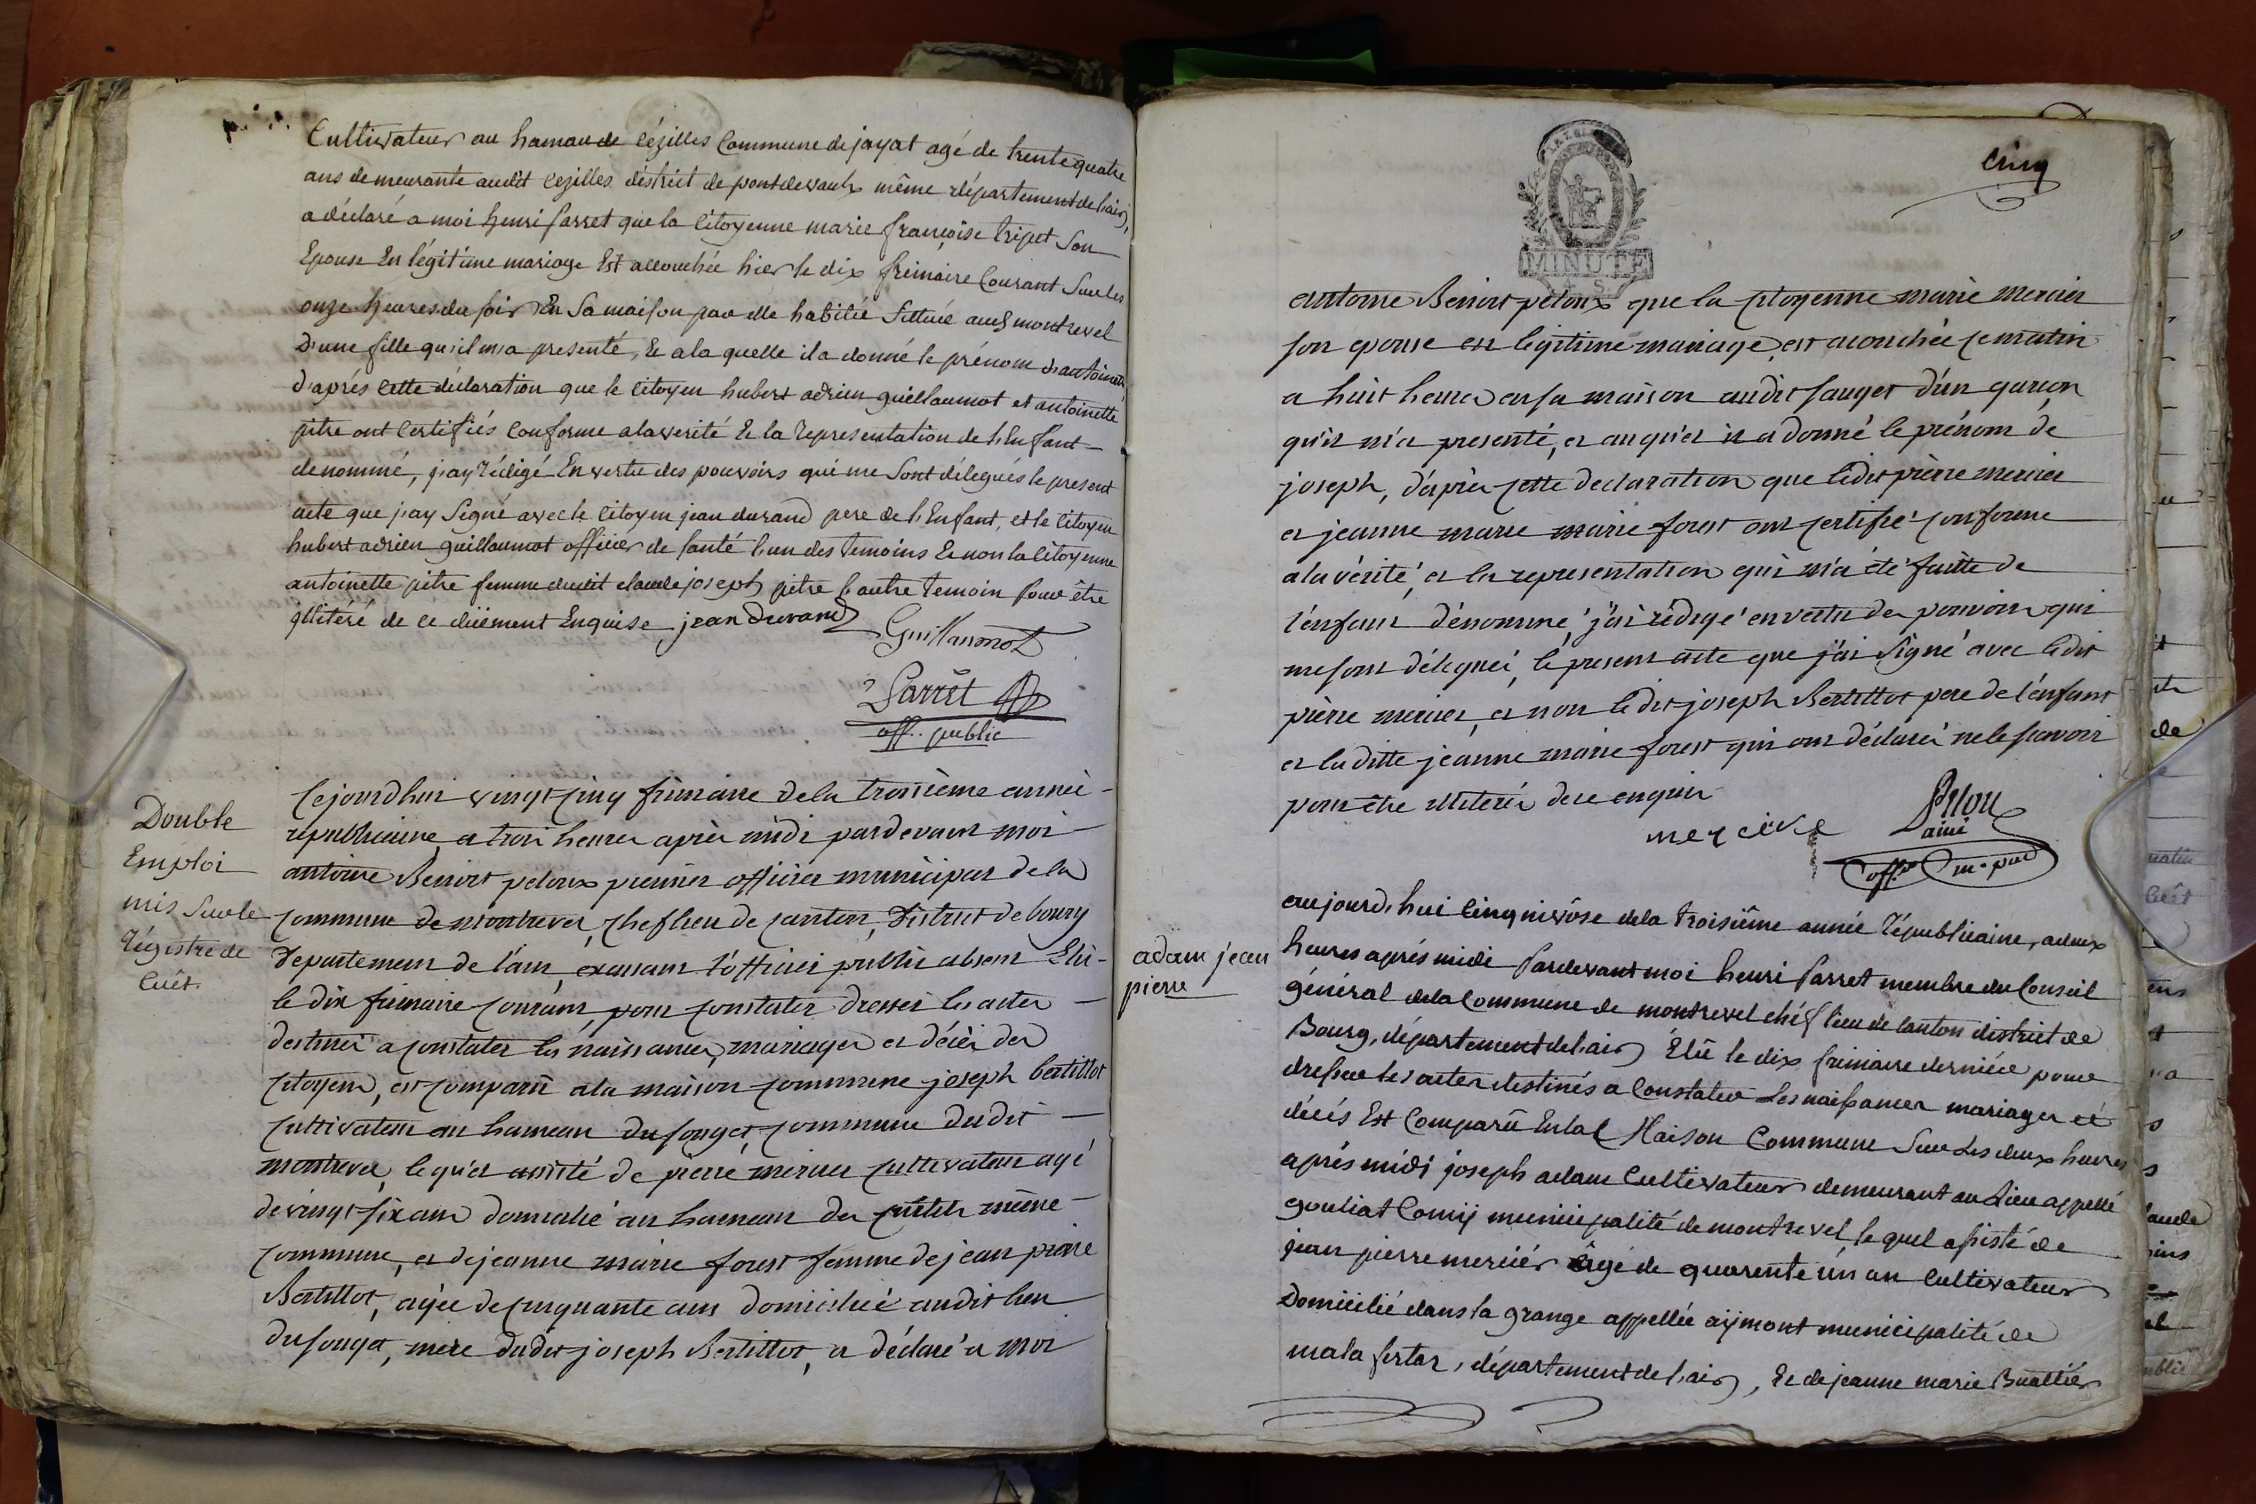 Cultivateur au hamau de Cézilles Commune de jayat agé de trente quatre
ans demeurante audit Cezilles district de pontdevaulx même département de l'ain
a déclaré a moi henri Parret que la Citoyenne marie françoise tripet Son
Epouse En légitime mariage Est accouchée hier le dix frimaire Courant Sur les
onze heures du soir En Sa maison par elle habitée Sittuée aud montrevel
D'une fille qu'il m'a presenté, Et a la quelle il a donné le prénom d'antoinette
d'après cette déclaration que le citoyen hubert adrien guillaumot et antoinette
pitre ont Certifiés Conforme a la verité Et la representation de l'Enfant
denommé, j'ay rédigé En vertu des pouvoirs qui me Sont délegués le present
acte que j'ay Signé avec le Citoyen jean durand pere de l'Enfant, et le Citoyen
hubert adrien guillaumot officier de santé l'un des temoins Et non la Citoyenne
antoinette pitre femme dudit claude joseph pitre l'autre temoin pour être
illitéré de ce düement Enquise jean Durand
Guillaumot
Parret
off. public
Double
Emploi
mis sur le
régistre de
Cuêt.
Cejourdhui vingt cinq frimaire de la troisième année
republicaine, a trois heures après midi pardevant moi
antoine Benoit peloux premier officier municipal de la
commune de montrevel, chef lieu de canton, District de bourg
Departement de l'ain, exerçant l'officier public absent Elû
le dix frimaire courant pour constater dresser les actes
destinés a constater les naissances, mariages et décès des
citoyens, est comparû a la maison commune joseph bertillot
cultivateur au hameau du souget, commune dudit
montrevel, lequel assisté de pierre mercier cultivateur agé
de vingt six ans domicilié au hameau des même
commune, et de jeanne marie forest femme de jean pierre
Bertillot, agée de cinquante ans domiciliée audit lieu
du souget, mere dudit joseph Bertillot, a déclaré a moi
MINUTE
cinq
antoine Benoit peloux que la citoyenne marie mercier
son epouse en legitime mariage, est acouchée ce matin
a huit heures en sa maison audit sauget d'un garçon
qu'il m'a presenté, et auquel il a donné le prénom de
joseph, d'après cette declaration que ledit pierre mercier
et jeanne marie marie forest ont certifié conforme
a la vérité, et la representation qui m'a été faitte de
l'enfant dénommé, j'ai rédigé en vertu des pouvoirs qui
me sont délegués, le present acte que j'ai signé avec ledit
pierre mercier, et non ledit joseph Bertillot pere de l'enfant
et laditte jeanne marie forest qui ont déclaré ne le sçavoir
pour être illiterés de ce enquis
mercier
Pelou
ainé
off. m. pub
adam jean
pierre
aujourd'hui Cinq nivôse de la troisiême année républicaine, a deux
heures aprés midi Pardevant moi henri Parret membre du Conseil
général de la Commune de montrevel chéf lieu de Canton district de
Bourg, département de l'ain Elû le dix frimaire derniére pour
dresser les actes destinés a Constater Les naissances mariages et
décés Est Comparû En la Maison Commune Sur Les deux heures
aprés midi joseph adam Cultivateur demeurant au Lieu appellé
gouliat municipalité de montrevel, le quel assisté de
jean pierre merciér âgé de quarente un an Cultivateur
Domicilié dans la grange appellée aymont municipalité de
mala fertas, département de l'ain, Et de jeanne marie Buattiér